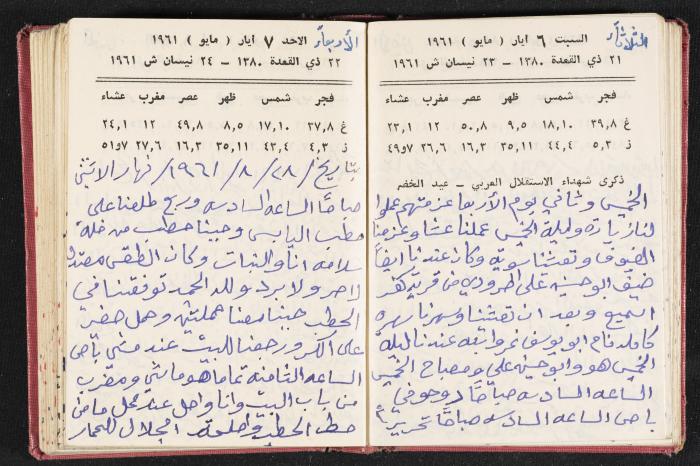 الثلاثاء
السبت ٦ ايار ( مايو ) ١٩٦١
٢١ ذي القعدة ١٣٨٠ — ٢٣ نيسان ش ١٩٦١
فجر شمس ظهر عصر مغرب عشاء
غ ٣٩,٨ ١٨,١٠ ٩,٥ ٥٠,٨ ١٢ ٢٣,١
ز ٥,٣ ٤٤,٤ ٣٥,١١ ١٦,٣ ٢٦,٦ ٤٩و٧
ذكرى شهداء الاستقلال العربي — عيد الخضر
الخميس وثاني يوم الأربعا عزمتهم عملوا
لنا زيارة وليلة الخميس عملنا عشا وعزمنا
الضيوف وتعشنا سوية وكان عندنا ايضاً
ضيق ابو حنيه علي من قرية كفر
وبعد ان تعشنا وسهرنا سهره
كامله نام ابو يوسف عندنا ليلة
الخميس هو وابو حنيه علي ومصباح الخميس
الساعه السادسه صباحاً روحو في
باص الساعه السادسه صباحا تحريراً
الأربعاء
الاحد ٧ ايار ( مايو ) ١٩٦١
٢٢ ذي القعدة ١٣٨٠ — ٢٤ نيسان ش ١٩٦١
فجر شمس ظهر عصر مغرب عشاء
غ ٣٧,٨ ١٧,١٠ ٨,٥ ٤٩,٨ ١٢ ٢٤,١
ز ٤,٣ ٤٣,٤ ٣٥,١١ ١٦,٣ ٢٧,٦ ٥١و٧
بتاريخ / ٢٨ / ٨ / ١٩٦١ / نهار الاثنين
صباحًا الساعه السادسه وربع طلعنا على
حطب اليابس وجبنا حطب من خلة
سلامه انا والنبات وكان الطقس معتدل
لا حر ولا برد ولله الحمد توفقنا في
الحطب جبنا معنا حملتين وحمل صغير
على الكر ورجعنا للبيت عند مشي باص
الساعه الثامنة تماما هو ماشي ومقرب
من باب البيت وانا واصل عند محل ما من
حط الحطب واصلحه الجلال للحمار